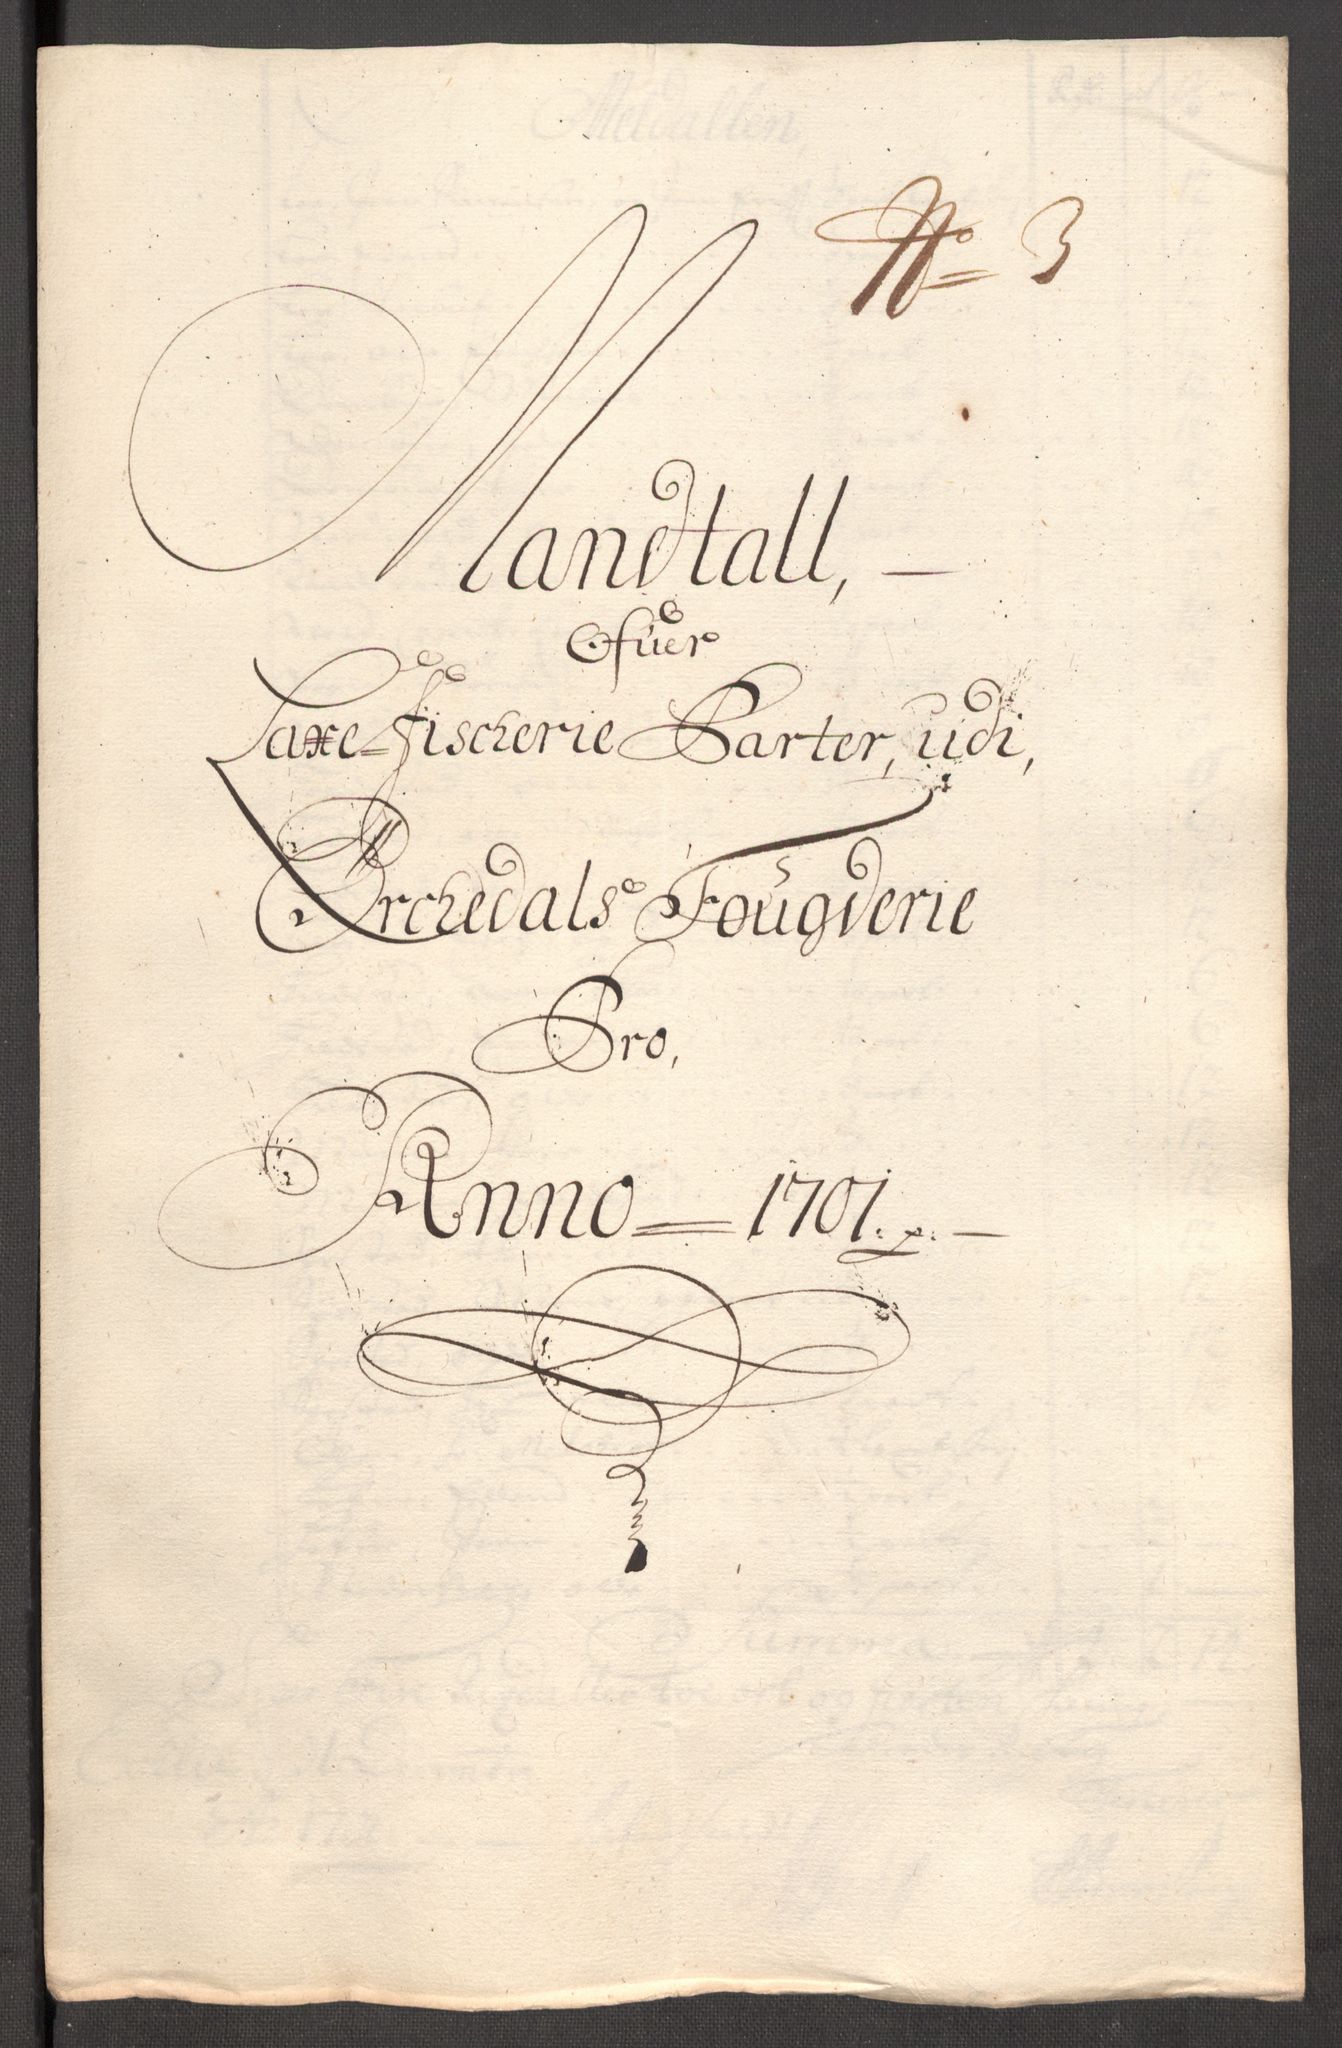 No 3
Mandtall,
Ofuer
Laxe-fischerie Parter, udi,
Orchedals Fougderie
Pro,
Anno 1701.